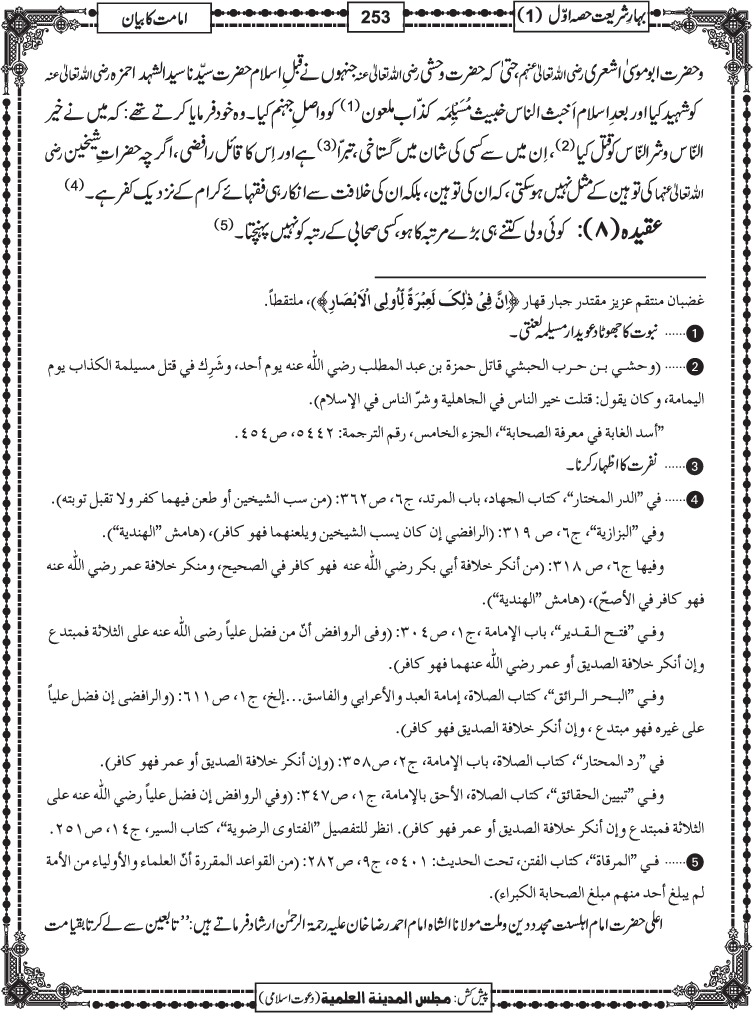 بہار شریعت حصہ اوّل (1)
253
امامت کا بیان
وحضرت ابو موسیٰ اشعری رضی اللہ تعالیٰ عنہم، حتیٰ کہ حضرت وحشی رضی اللہ تعالیٰ عنہ جنہوں نے قبلِ اسلام حضرت سیّدنا سید الشہدا حمزہ رضی اللہ تعالیٰ عنہ
کو شہید کیا اور بعدِ اسلام اَخبث الناس خبیث مُسَیْلِمَہ کذّاب ملعون (1) کو واصلِ جہنم کیا۔ وہ خود فرمایا کرتے تھے: کہ میں نے خیر
النّاس و شر النّاس کو قتل کیا (2)، اِن میں سے کسی کی شان میں گستاخی، تبرّا (3) ہے اور اِس کا قائل رافضی، اگرچہ حضراتِ شیخین رضی
اللہ تعالیٰ عنہما کی توہین کے مثل نہیں ہوسکتی، کہ ان کی توہین، بلکہ ان کی خلافت سے انکار ہی فقہائے کرام کے نزدیک کفر ہے۔ (4)
عقیدہ (۸): کوئی ولی کتنے ہی بڑے مرتبہ کا ہو، کسی صحابی کے رتبہ کو نہیں پہنچتا۔ (5)
غضبان منتقم عزیز مقتدر جبار قهار ﴿اِنَّ فِیْ ذٰلِکَ لَعِبْرَةً لِّاُولِی الْاَبْصَارِ﴾)، ملتقطاً.
1 ...... نبوت کا جھوٹا دعویدار مسیلمہ لعنتی۔
2 ...... (وحشي بن حرب الحبشي قاتل حمزة بن عبد المطلب رضي الله عنه يوم أحد، وشَرِك في قتل مسيلمة الكذاب يوم
اليمامة، وكان يقول: قتلت خير الناس في الجاهلية وشرّ الناس في الإسلام).
”أسد الغابة في معرفة الصحابة“، الجزء الخامس، رقم الترجمة: ٥٤٤٢، ص٤٥٤.
3 ...... نفرت کا اظہار کرنا۔
4 ...... في ”الدر المختار“، كتاب الجهاد، باب المرتد، ج٦، ص٣٦٢: (من سب الشيخين أو طعن فيهما كفر ولا تقبل توبته).
وفي ”البزازية“، ج٦، ص ٣١٩: (الرافضي إن كان يسب الشيخين ويلعنهما فهو كافر)، (هامش ”الهندية“).
وفيها ج٦، ص ٣١٨: (من أنكر خلافة أبي بكر رضي الله عنه فهو كافر في الصحيح، ومنكر خلافة عمر رضي الله عنه
فهو كافر في الأصحّ)، (هامش ”الهندية“).
وفي ”فتح القدير“، باب الإمامة ،ج١، ص٣٠٤: (وفى الروافض أنّ من فضل علياً رضى الله عنه على الثلاثة فمبتدع
وإن أنكر خلافة الصديق أو عمر رضي الله عنهما فهو كافر).
وفي ”البحر الرائق“، كتاب الصلاة، إمامة العبد والأعرابي والفاسق...إلخ، ج١، ص٦١١: (والرافضى إن فضل علياً
على غيره فهو مبتدع ، وإن أنكر خلافة الصديق فهو كافر).
في ”رد المحتار“، كتاب الصلاة، باب الإمامة، ج٢، ص٣٥٨: (وإن أنكر خلافة الصديق أو عمر فهو كافر).
وفي ”تبيين الحقائق“، كتاب الصلاة، الأحق بالإمامة، ج١، ص٣٤٧: (وفي الروافض إن فضل علياً رضي الله عنه على
الثلاثة فمبتدع وإن أنكر خلافة الصديق أو عمر فهو كافر). انظر للتفصيل ”الفتاوى الرضوية“، كتاب السير، ج١٤، ص٢٥١.
5 ...... في ”المرقاة“، كتاب الفتن، تحت الحديث: ٥٤٠١، ج٩، ص٢٨٢: (من القواعد المقررة أنّ العلماء والأولياء من الأمة
لم يبلغ أحد منهم مبلغ الصحابة الكبراء).
اعلی حضرت امام اہلسنت مجدد دین و ملت مولانا الشاہ امام احمد رضا خان علیہ رحمۃ الرحمٰن ارشاد فرماتے ہیں: ’’تابعین سے لے کر تا بقیامت
پیش کش: مجلس المدينة العلمية (دعوت اسلامی)